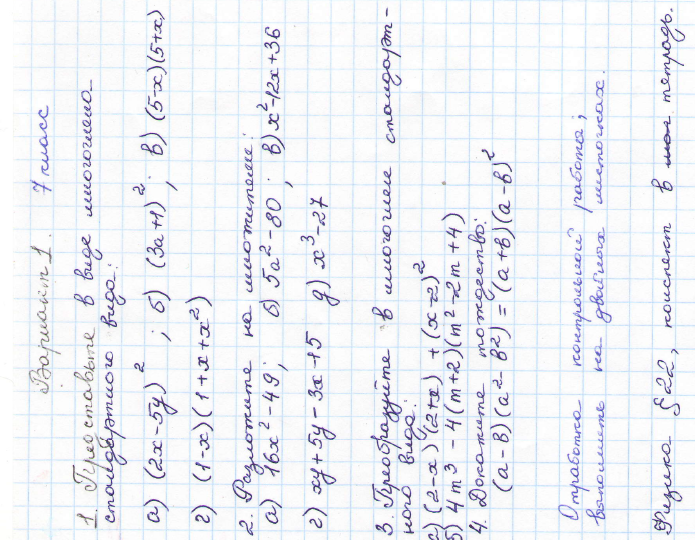 Вариант 1. 7 класс
1. Представьте в виде многочлена
стандартного вида:
а) (2x-5y)²; б) (3a+1)²; в) (5-x)(5+x)
г) (1-x)(1+x+x²)
2. Разложите на множители:
а) 16x²-49; б) 5a²-80; в) x²-12x+36
г) xy+5y-3x-15 д) x³-27
3. Преобразуйте в многочлен стандарт-
ного вида:
а) (2-x)(2+x)+(x-2)²
б) 4m³-4(m+2)(m²-2m+4)
4. Докажите тождество:
(a-b)(a²-b²)=(a+b)(a-b)²
Отработка контрольной работы;
выполните на двойных листочках.
Физика §22, конспект в тетрадь.